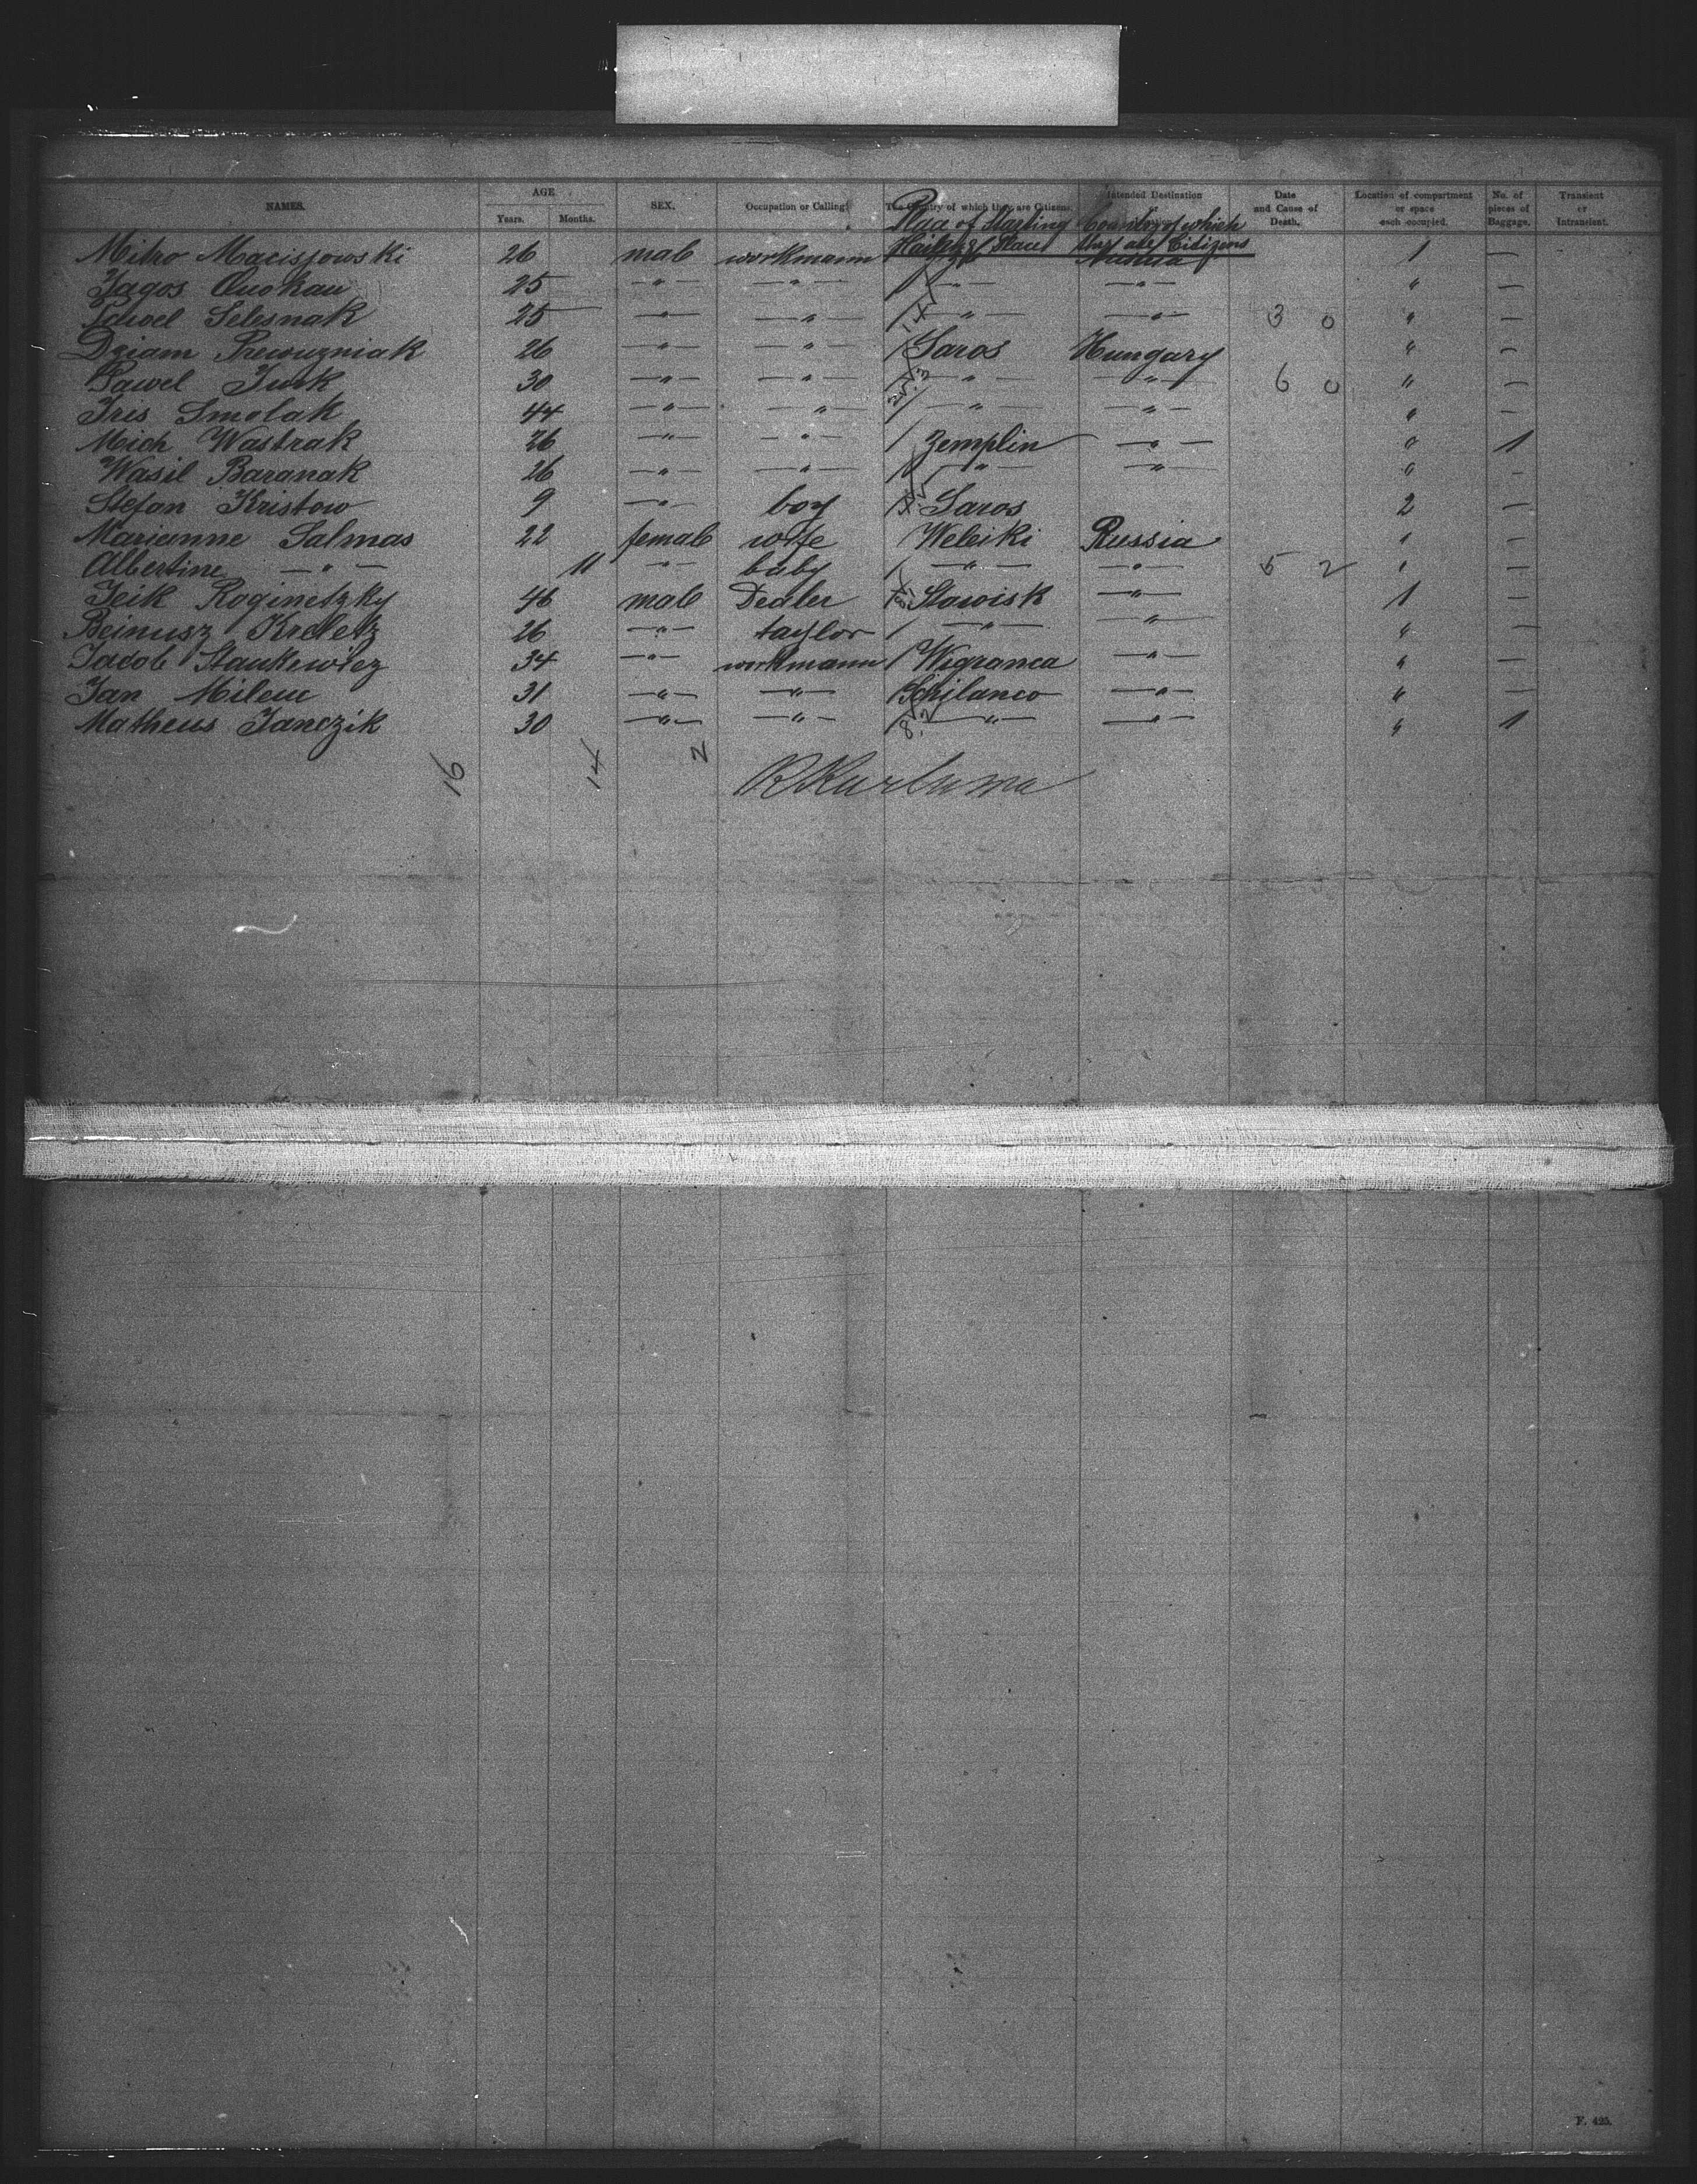 NAMES. AGE Years. Months. SEX. Occupation or Calling. The Country of which they are Citizens. Intended Destination Date and Cause of Death. Location of compartment or space each occupied. No. of pieces of Baggage. Transient or Intransient.
Place of Starting Country of which
Place they are Citizens
Mitro Macisjowski 26 male workmann 1 —
Jagos 25 — " — — " — — " — — " — " —
Pawel Selesnak 25 — " — — " — — " — — " — 3 0 " —
Dziam Prewuzniak 26 — " — — " — Saros Hungary " —
Pawel Jurk 30 — " — — " — — " — — " — 6 0 " —
Iris Smolak 44 — " — — " — — " — — " — " —
Mich Wastrak 26 — " — — " — Zemplin — " — " 1
Wasil Baranak 26 — " — — " — — " — — " — " —
Stefan Kristow 9 — " — boy Saros 2 —
Marianne Salmas 22 female wife Weleiki Russia " —
Albertine — " — 11 — " — baby — " — — " — 5 2 " —
Jeik Roginetzky 46 male Dealer Stawisk — " — 1 —
Beinusz Kreletz 26 — " — taylor — " — — " — " —
Jacob Stankewicz 34 — " — workmann Wigranca — " — " —
Jan Mileu 31 — " — — " — Schilanco — " — " —
Matheus Janczik 30 — " — — " — — " — — " — " 1
16 14 2
F. 425.